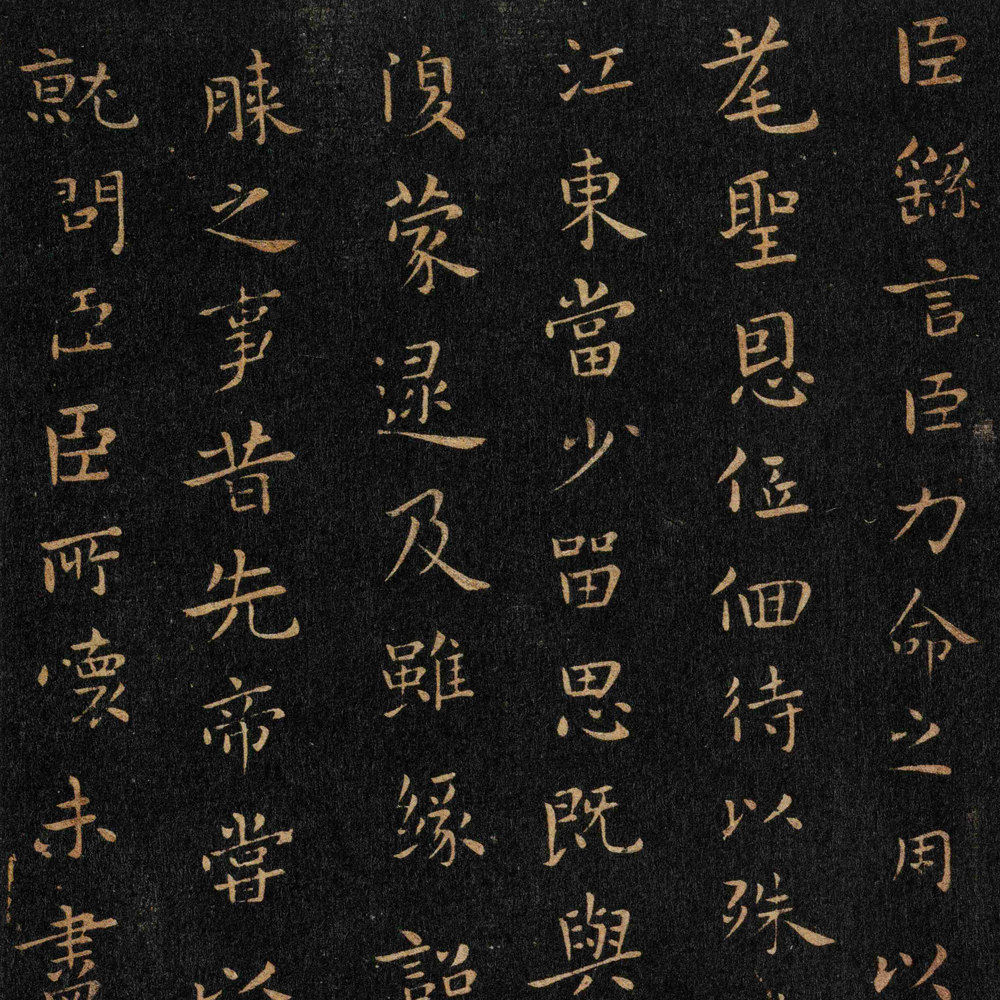 臣繇言臣力命之用以
耄聖恩低佪待以殊
江東當少留思既與
復蒙逮及雖緣詔
膝之事昔先帝嘗以
就問臣臣所懷未盡